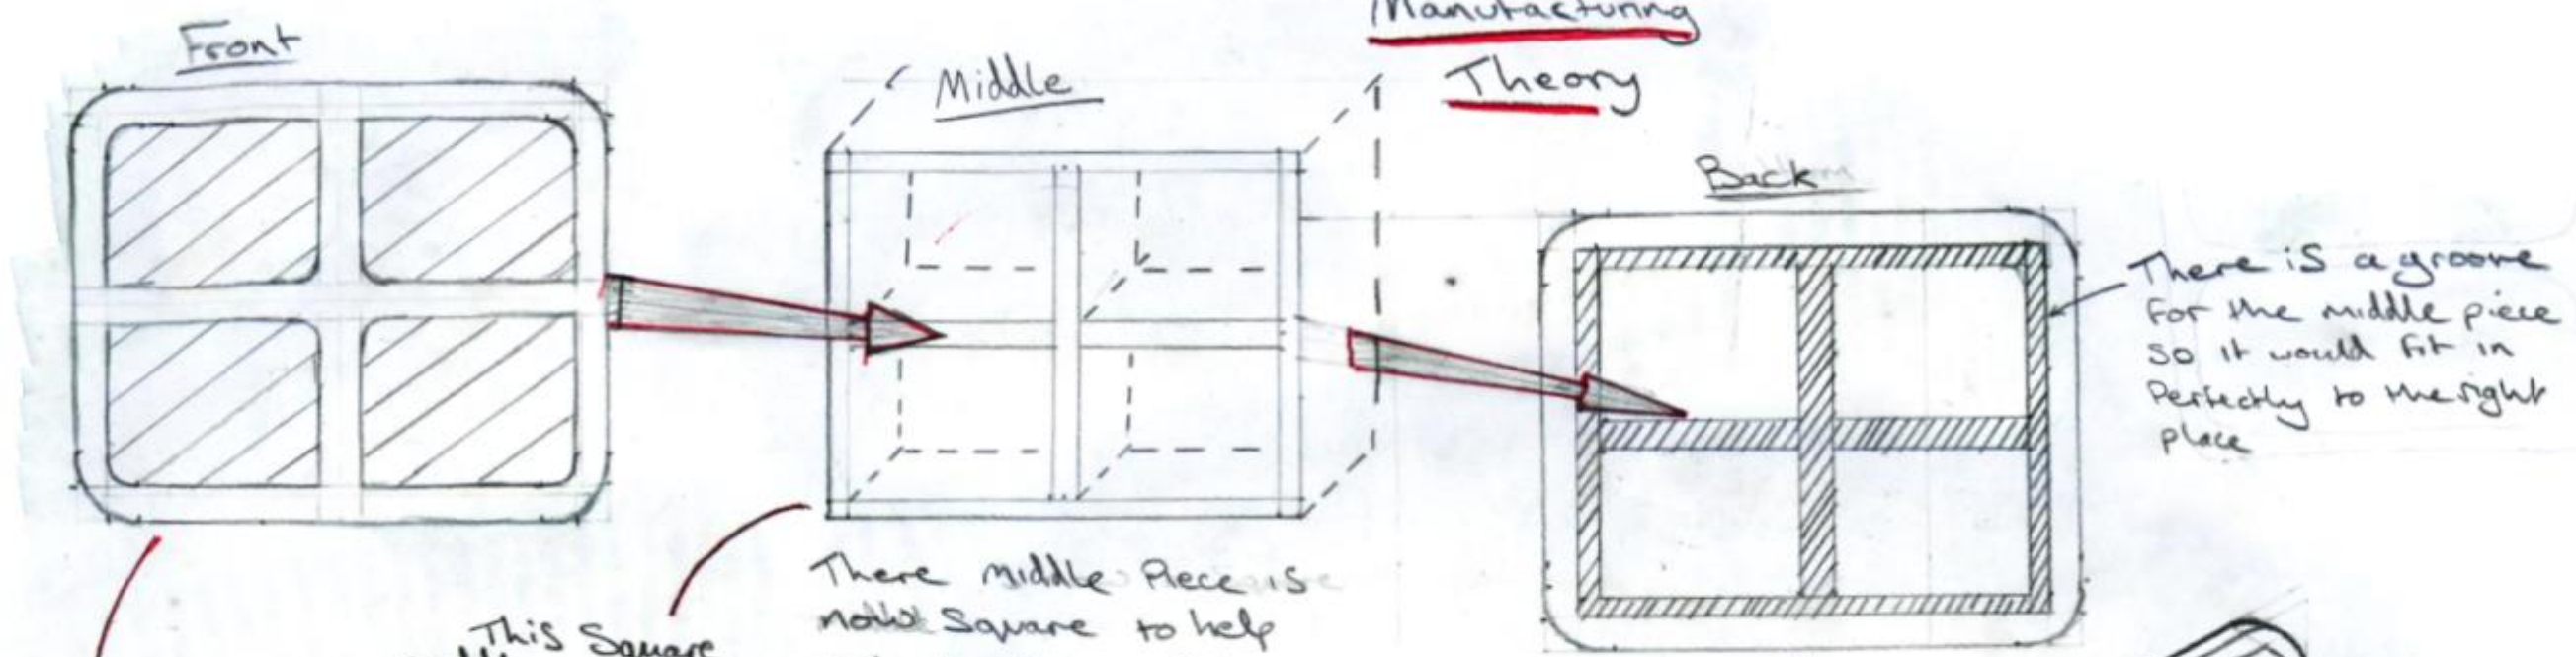 Manufacturing
Theory
Front
Middle
Back
There is a groove
for the middle piece
so it would fit in
Perfectly to the right
place
There middle Piece is
now Square to help
This Square